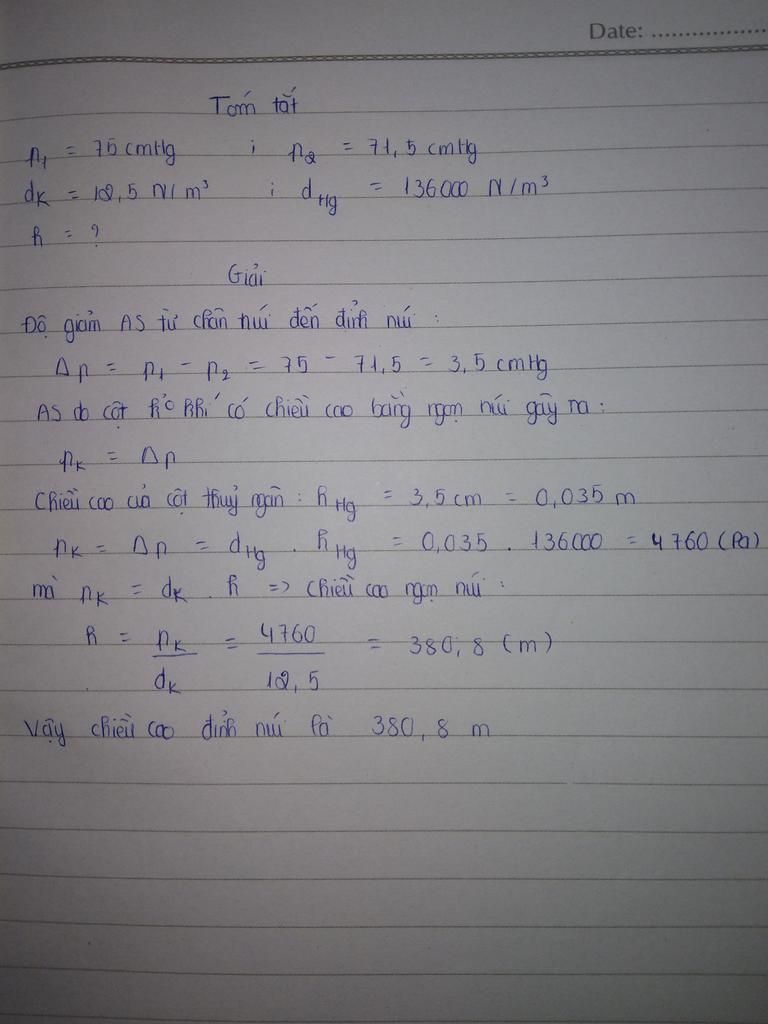 Date: ..................
Tóm tắt
p₁ = 75 cmHg ; p₂ = 71,5 cmHg
dK = 12,5 N/m³ ; dHg = 136000 N/m³
h = ?
Giải
Độ giảm AS từ chân núi đến đỉnh núi :
Δp = p₁ - p₂ = 75 - 71,5 = 3,5 cmHg
AS do cột k² khí có chiều cao bằng ngọn núi gây ra :
pK = Δp
Chiều cao của cột thuỷ ngân : hHg = 3,5 cm = 0,035 m
pK = Δp = dHg . hHg = 0,035 . 136000 = 4760 (Pa)
mà pK = dK . h => chiều cao ngọn núi :
h = pK/dK = 4760/12,5 = 380,8 (m)
Vậy chiều cao đỉnh núi là 380,8 m